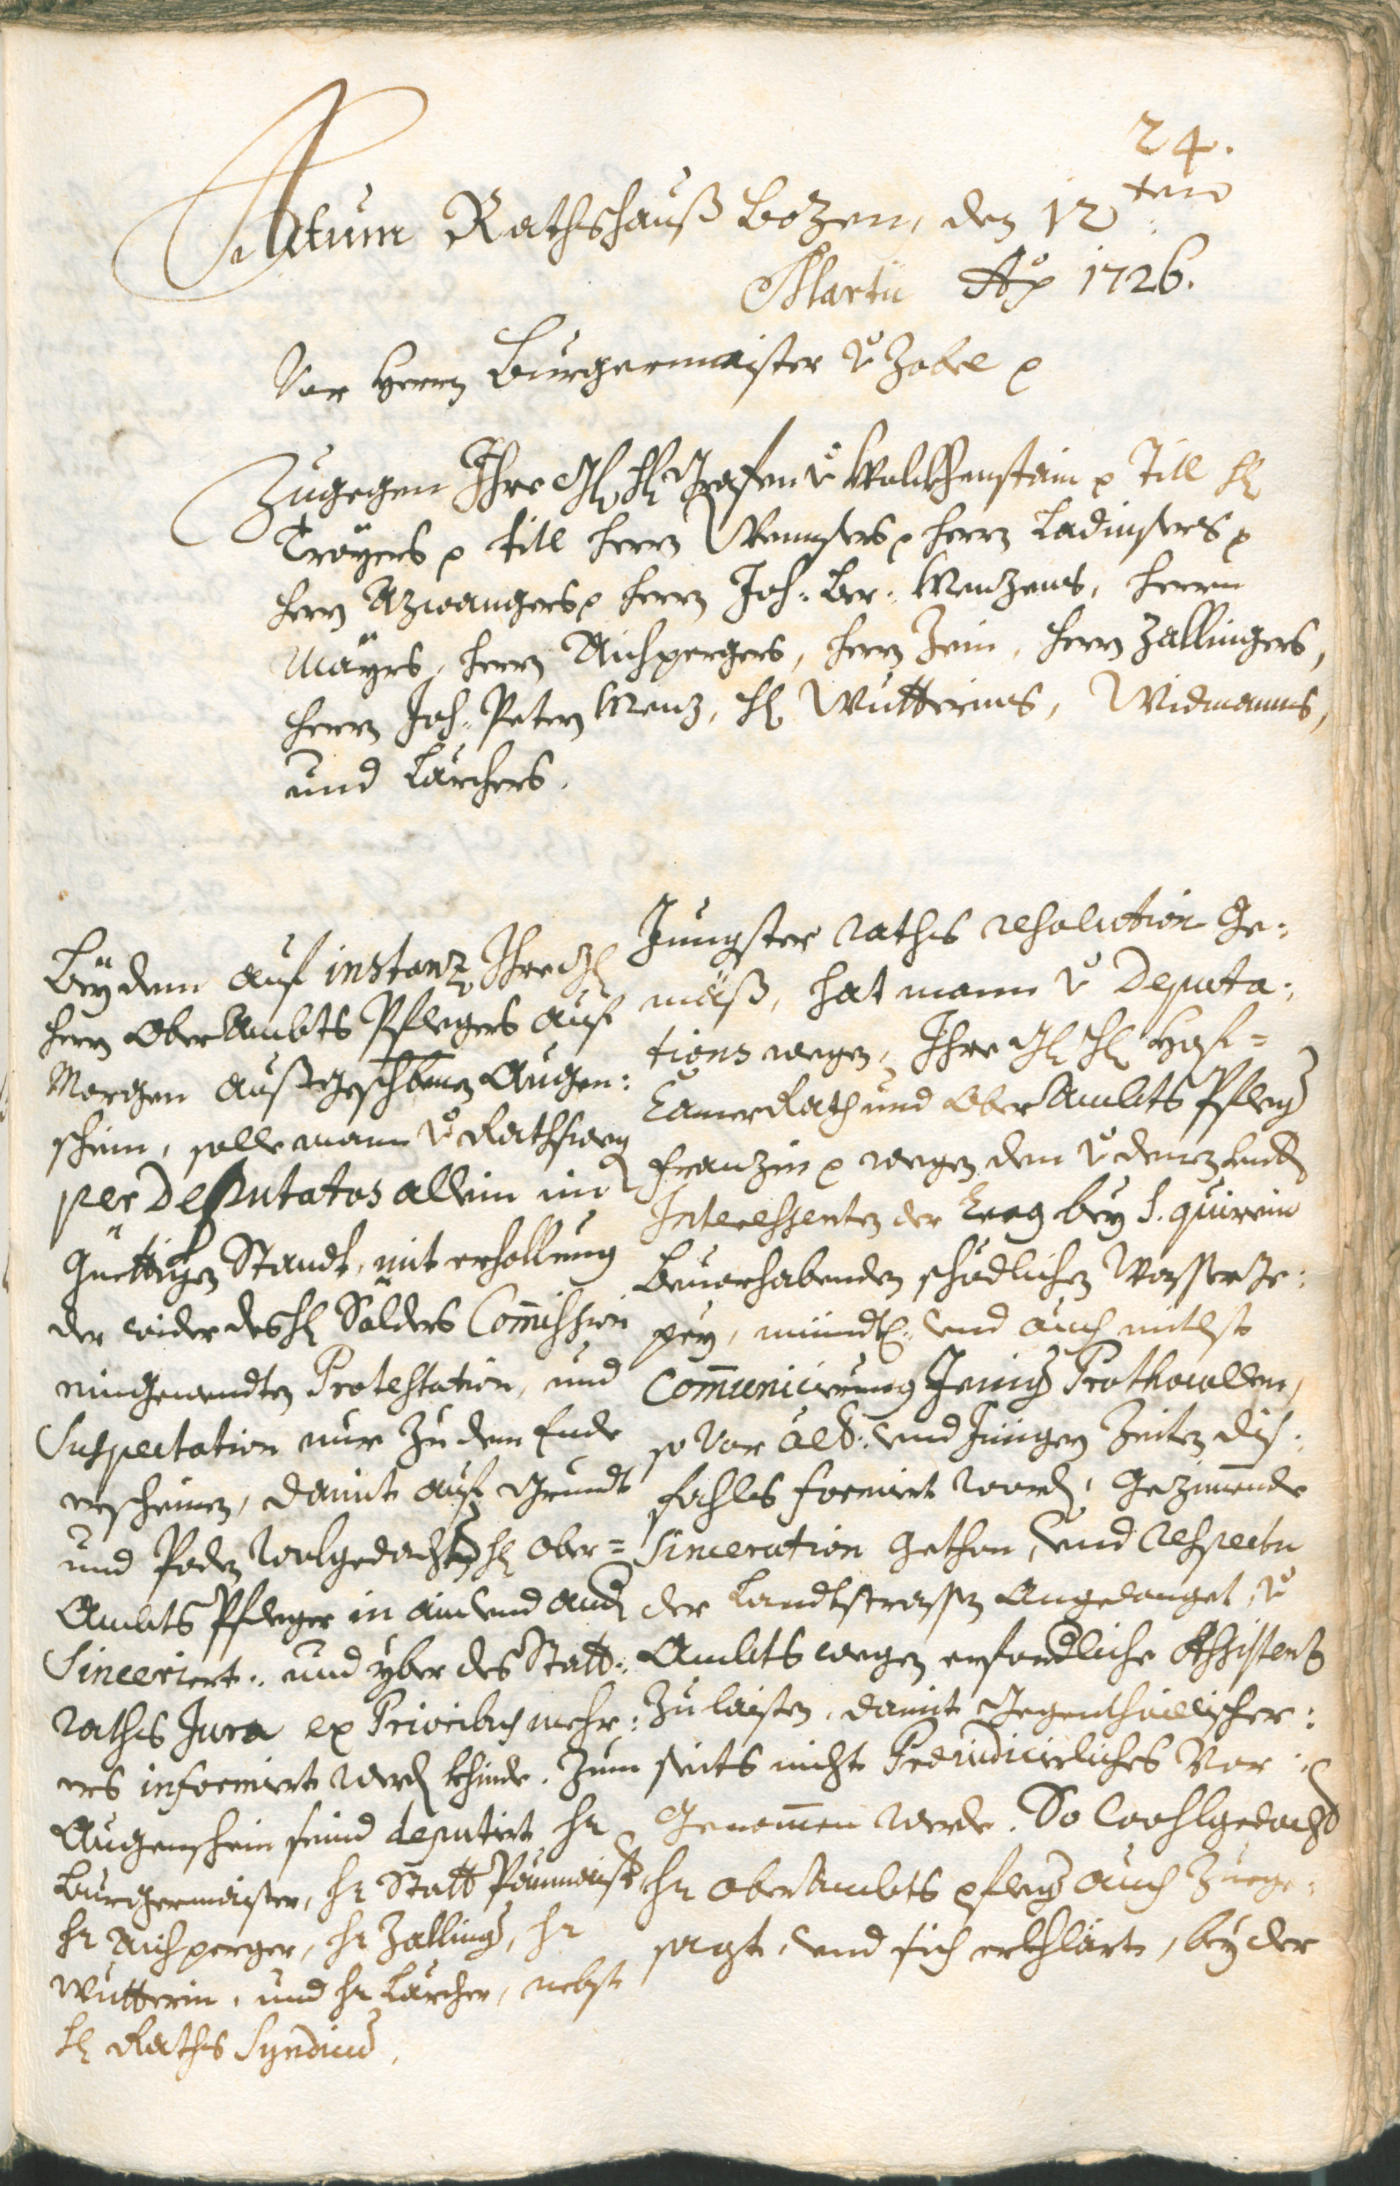 24.
Actum Rathshauß Bozen, den 12ten
Martii Ao 1726.
Vor Herrn Burgermaister v Zobel p
Zugegen Ihro Gl Hl Grafen v Wolckhenstain p Titl Hl
Troyers p titl Herrn Wenser p Herrn Ladinsers p
Herrn Azwangers p Herrn Joh: Ber: Menzens, Herrn
Mayrs, Herrn Aichpergers, Herrn Zein, Herrn Zallingers,
Herrn Joh: Peter Menz, Hl Wutterins, Widmanns,
und Larchers.
Bey dem auf instanz Ihro Gl
Herrn OberAmbts Pflegers auf
Morgen außgeschribnen Augen:
schein, solle mann v Raths weg
per Deputatos allein im
Güettigen Standt, mit erhollung
der wider des Hl Sölders Commission
eingewendten Protestation, und
Suspectation nur zu dem Ende
erscheinen, damit auf Grundt
und Poden wolgedachter Hl Ober=
Ambts Pfleger in ain und andr
Sinceriert: und yber des Statt:
raths Jura ex Prioribus mehr:
ers informiert werdn khinde. Zum
Augenschein seind deputirt Hr
Burgermaister, Hr Statt Paumaistr
Hr Aichperger, Hr Zallingr, Hr
Wutterin, und Hr Larcher, nebst
Hl Raths Syndico.
Jungster raths resolution Ge:
mäß, hat mann v Deputa:
tions wegen, Ihro Gl Hl Hof=
CamerRath und OberAmbts Pflegr
Franzin p wegen dem v denen
Interessenten der Leeg bey S. Quirein
bevorhabenden schädlichen Wasser Ge:
pey, mündtl: und auch mitlst
Communicierung Jenigr Prothocollen,
so vor alt: und Jüngen Zeiten diß:
fahls formirt wordn, Gezimende
Sinceration gethan, und respectu
der Landtstrassen Angelanget, v
Ambts wegen erfordliche Assistenz
zu laisten, damit Gegenthaillischer:
seits nicht Preiudicierliches Vor:
Genommen werde. So wohlgedacht
Hr OberAmbts pflegr auch Zuege:
sagt, und sich erkhlärt, bey der